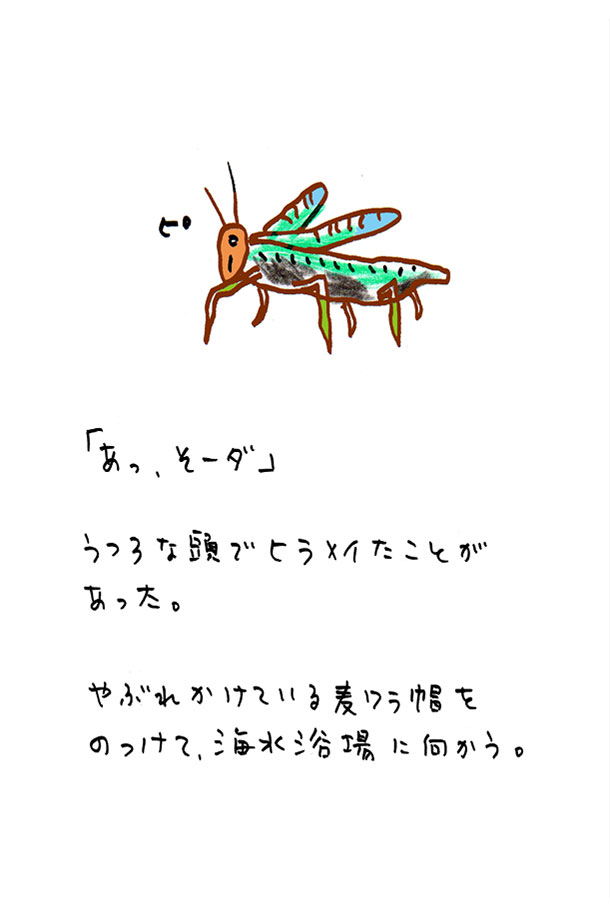 ピ
「あっ、そーダ」
うつろな頭でヒラメイたことが
あった。
やぶれかけている麦ワラ帽を
のっけて、海水浴場に向かう。